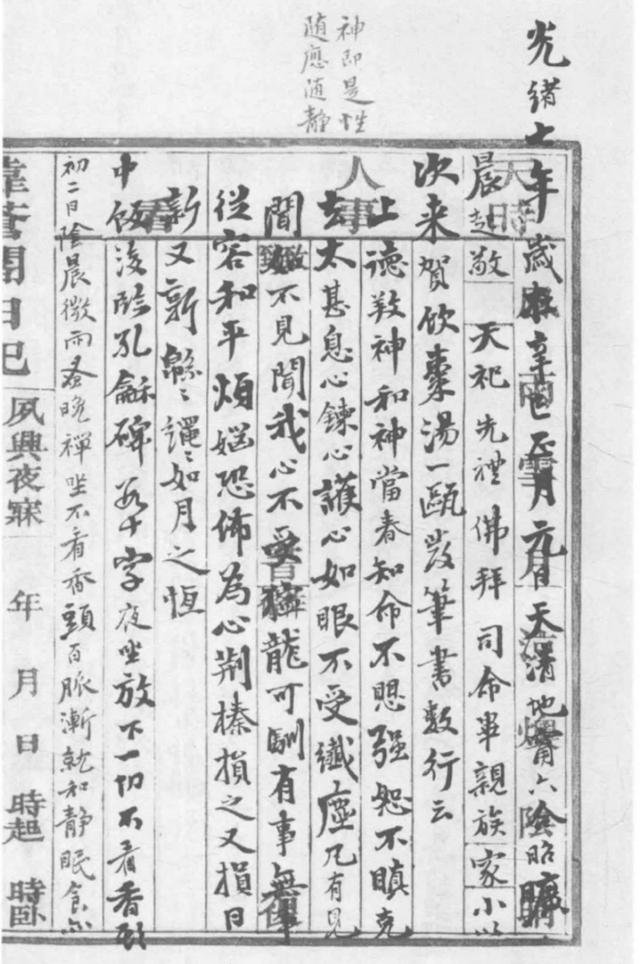 神即是性
随應随静
光緒七年歲在辛巳正月元日天清地甯六陰昭曠
晨起敬天祀先禮佛拜司命畢親族家小以
次来賀飲棗湯一甌發筆書数行云
上德敦神和神當春知命不愠强恕不瞋克
去太甚息心鍊心護心如眼不受纖塵凡有見
聞如不見聞我心不受獰龍可馴有事無事
從容和平煩惱恐怖為心荆榛損之又損日
新又新緜緜繩繩如月之恆
中飯後臨孔龢碑五十字夜坐放下一切不看香頭
初二日陰晨微雨蚤晚禪坐不看香頭百脈漸就和静眠食亦
日記
夙興夜寐 年 月 日 時起 時卧
天時
人事